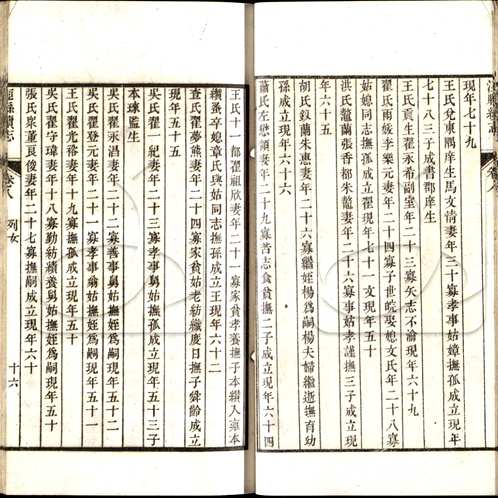 現年七十九
王氏兌東隅庠生馬文清妻年三十寡孝事姑嫜撫孤成立現年
七十八三子成書郡庠生
王氏貢生翟永希副室年二十三寡矢志不渝現年六十九
翟氏雨岐李樂元妻年二十四寡子世皖娶媳文氏年二十八寡
姑媳同志撫孤成立翟現年七十一文現年五十
洪氏鼇蘭張香都朱蘭妻年二十六寡事姑孝謹撫三子成立現
年六十五
胡氏赵蘭朱惠妻年二十六寡繼姪楊爲嗣楊夫婦繼逝撫育幼
孫成立現年六十六
蕭氏左懋頴妻年二十九寡苦志食貧撫二子成立現年六十四
王氏十一都翟祖欣妻年二十一寡家貧孝養撫子本纘入雍本
纘蚤卒媳章氏與姑同志撫孫成立王現年六十二
查氏翟夢熊妻年二十四寡家貧姑老紡織度日撫子舜齡成立
現年五十五
吳氏翟一紀妻年二十三寡孝事舅姑撫孤成立現年五十三子
本璂監生
吳氏翟永滔妻年二十二寡善事舅姑撫姪爲嗣現年五十二
吳氏翟登元妻年二十一寡孝事翁姑撫姪爲嗣現年五十一
王氏翟光裕妻年十九寡撫孤成立現年五十
吳氏翟守瑋妻年十八寡勤紡績養舅姑撫姪爲嗣現年五十
張氏崇董良俊妻年二十七寡撫嗣成立現年六十
涇縣續志
卷八
列女
十六